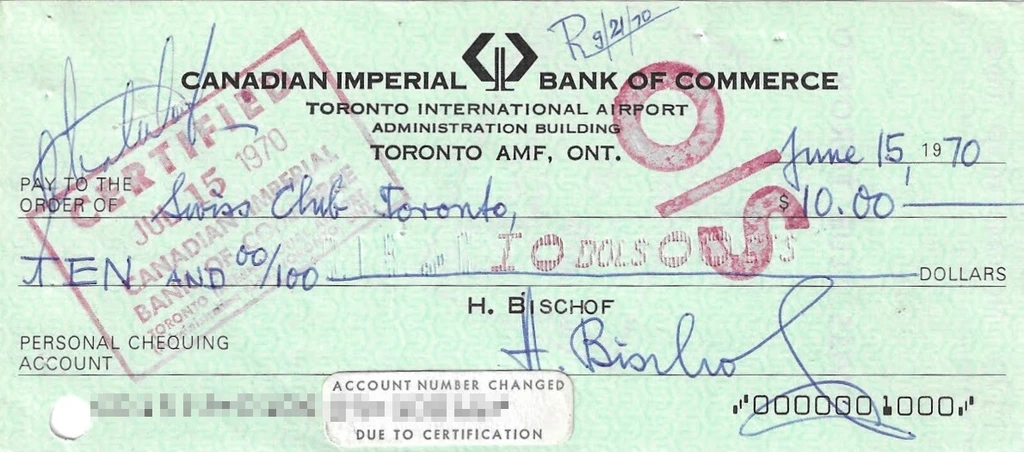 R 9/21/70
CANADIAN IMPERIAL BANK OF COMMERCE
TORONTO INTERNATIONAL AIRPORT
ADMINISTRATION BUILDING
TORONTO AMF, ONT.
CERTIFIED
JUN 15 1970
CANADIAN IMPERIAL
BANK OF COMMERCE
TORONTO
June 15, 1970
PAY TO THE
ORDER OF Swiss Club Toronto, $ 10.00
TEN AND 00/100 DOLLARS
10 DOLS 0
H. BISCHOF
PERSONAL CHEQUING
ACCOUNT
H. Bischof
ACCOUNT NUMBER CHANGED
DUE TO CERTIFICATION
0000001000